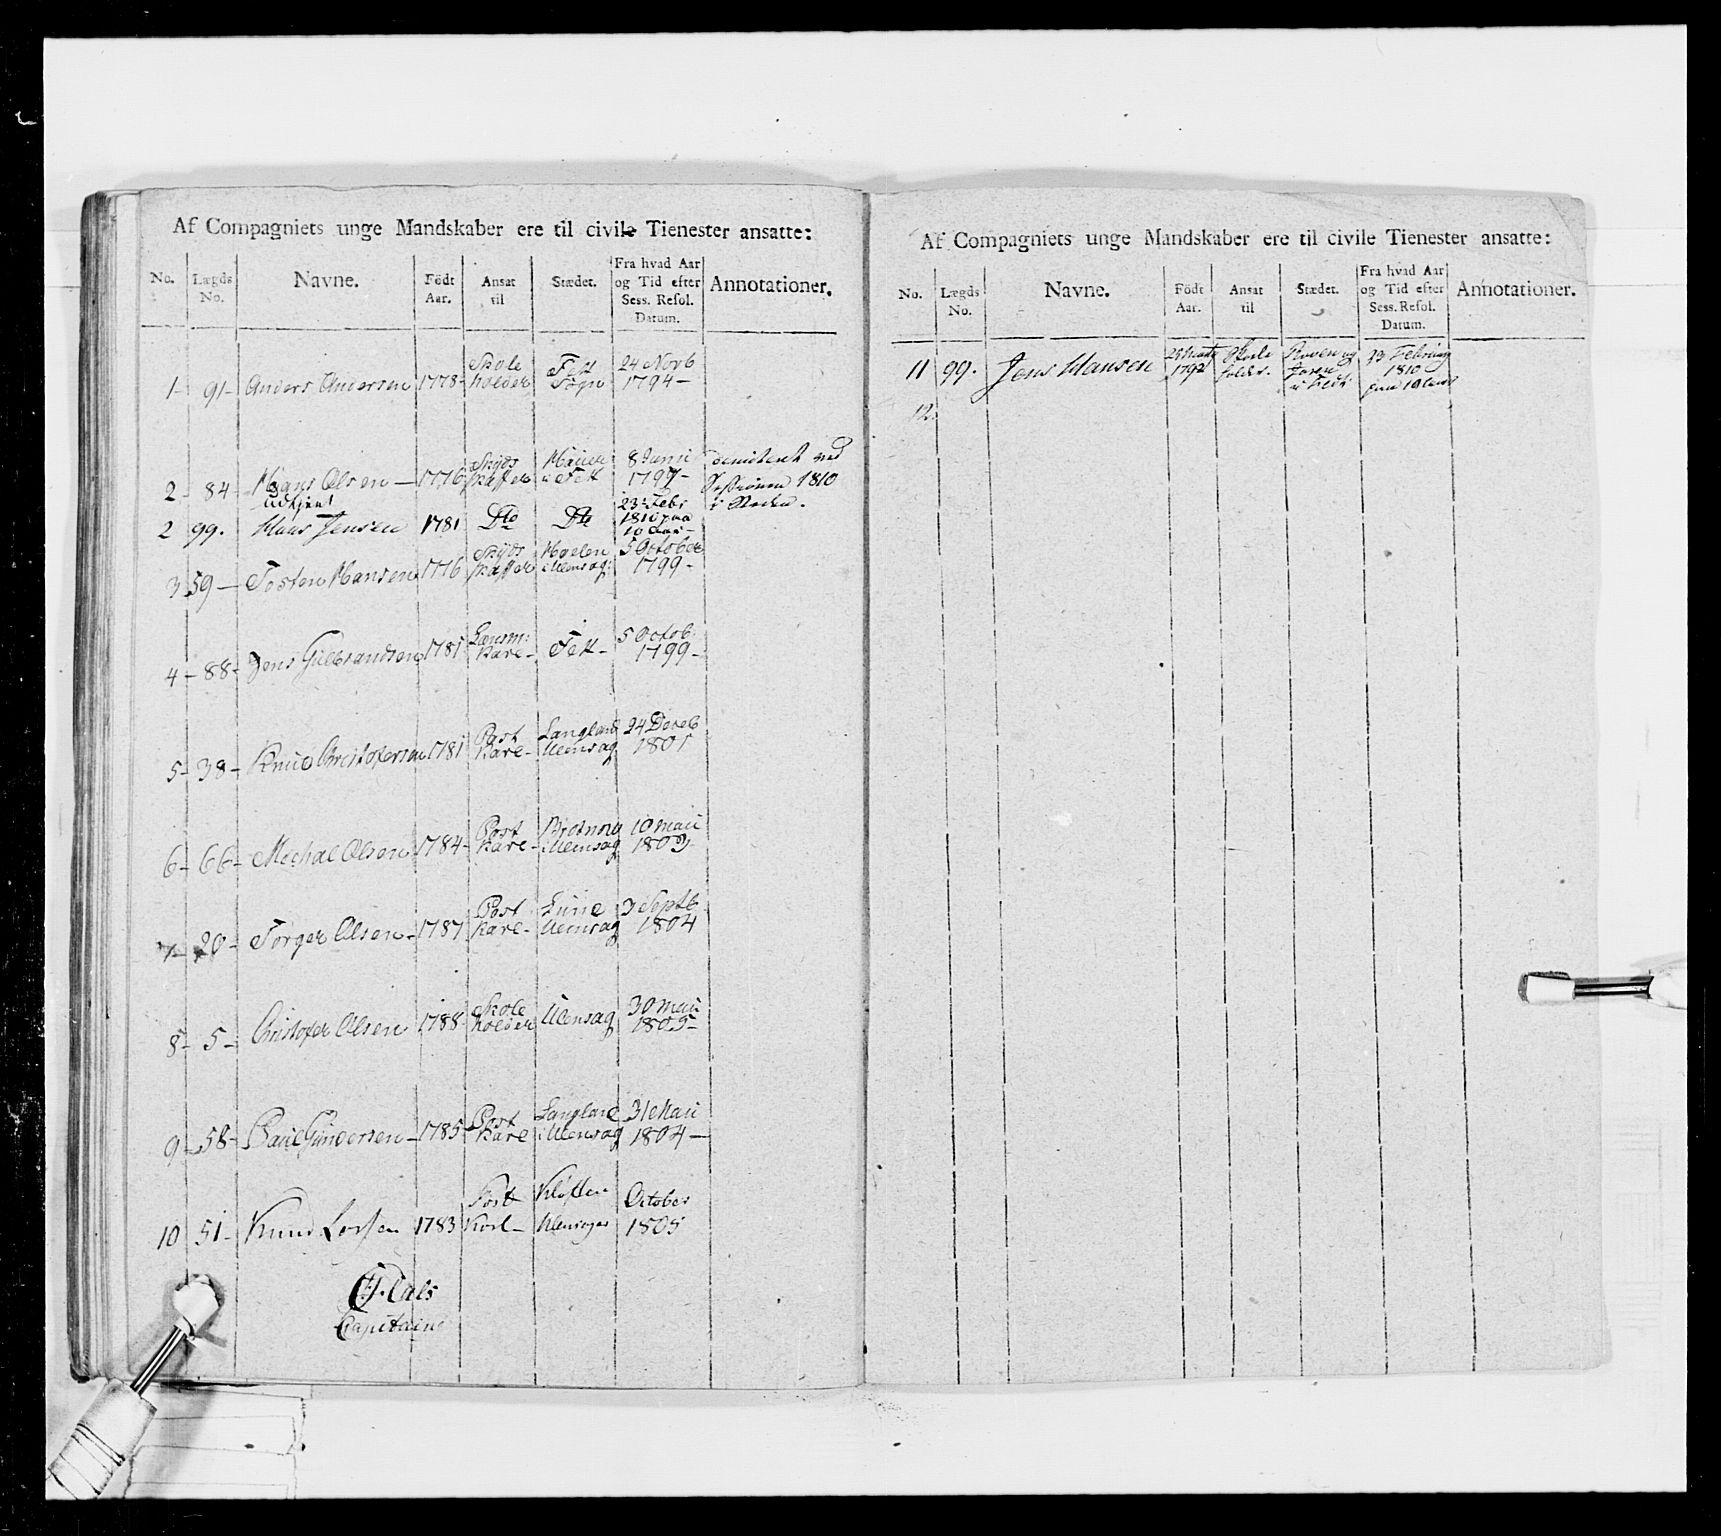 Af Compagniets unge Mandskaber ere til civile Tienester ansatte:
No. Lægds No. Navne. Födt Aar. Ansat til Stædet. Fra hvad Aar og Tid efter Sess. Resol. Datum. Annotationer.
1- 91- Anders Andersen 1778- Skole holder Fett Sogn 24 Novb 1794-
2- 84- Hans Olsen - 1776 Skyds skaffer i Fett 8 Junii 1797- 1810
udtjent
2 99. Hans Jensen 1781 Dto Dto 23 Febr 1810 paa 10 Aar-
3 59- Tosten Hansen 1776 Skyds skaffer Moelen i Ulensag: 5 October 1799-
4- 88- Jens Gulbrandsen 1781 Lænsm: Karl- Fett- 5 Octob 1799-
5- 38- Knud Christofersen 1781 Post Karl- Langland Ulensag 24 Deceb 1801
6- 66- Mechal Olsen 1784- Post Karl- i Ulensag 10 Maii 1803
7- 20- Torger Olsen- 1787 Post Karl- Lund Ulensag 3 Septb 1804
8- 5- Christofer Olsen 1788- Skole holder Ulensag 30 Maii 1805-
9- 58- Paul Gundersen- 1785- Post Karl Langland i Ulensag 31 Maii 1804-
10 51- Knud Larsen 1783 Post Karl- Kløften Ulensager October 1805
Capitain
Af Compagniets unge Mandskaber ere til civile Tienester ansatte:
No. Lægds No. Navne. Födt Aar. Ansat til Stædet. Fra hvad Aar og Tid efter Sess. Resol. Datum. Annotationer.
11 99. Jens Hansen 1792 Skole holder. i Fedt 23 Februarij 1810 paa 10 Aar
12.